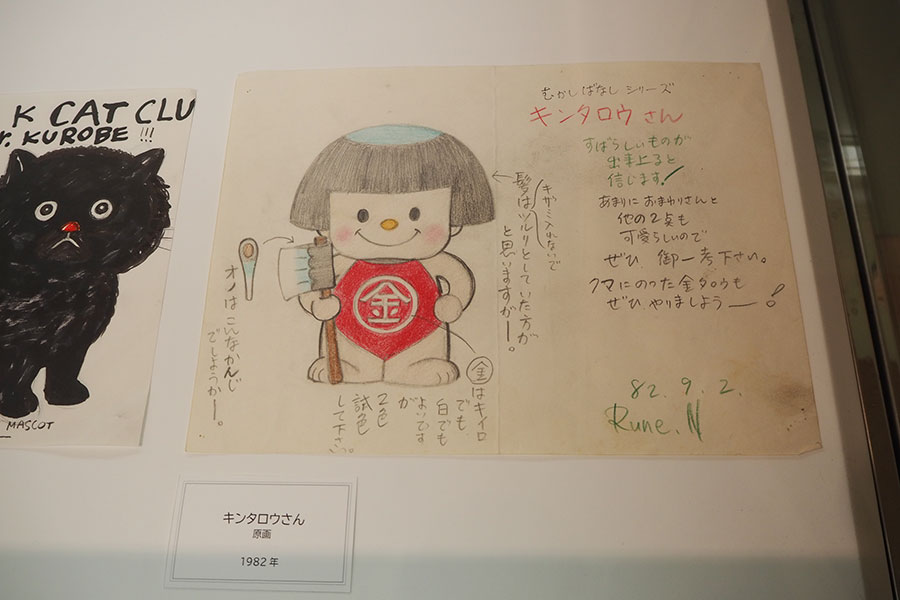 K CAT CLU
r. KUROBE !!!
MASCOT
むかしばなしシリーズ
キンタロウさん
すばらしいものが
出来上ると
信じます!
あまりにおまわりさんと
他の2点も
可愛らしいので
ぜひ、御一考下さい。
クマにのった金タロウも
ぜひやりましょうー!
82. 9. 2.
Rune. N
キザミ入れないで
髪はツルリとしていた方が
と思いますがー。
金
オノはこんなかんじ
でしょうかー。
金はキイロ
でも、
白でも
よいです
が
2色
試色
して下さい。
キンタロウさん
原画
1982年